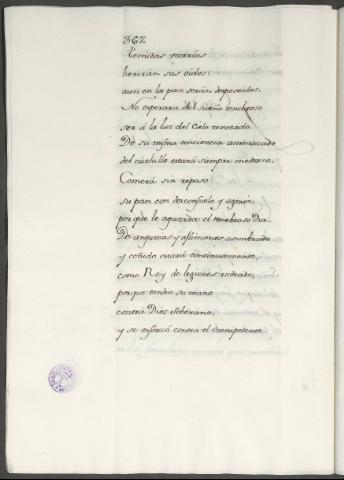 362
Temidas vocerías
herirán sus oidos:
aun en la paz serán desposeidos.
No esperara del sueño tenebroso
ser á la luz del Cielo revocado
De su misma conciencia amenazado
del cuchillo estará siempre medroso.
Comerá sin reposo
su pan con desconsuelo y agonia,
porque le aguarda el tenebroso dia.
De angustias y aflicciones asombrado
y ceñido estará continuamente,
como Rey de legiones rodeado,
porque tendio su mano
contra Dios Soberano,
y se esforzó contra el Omnipotente